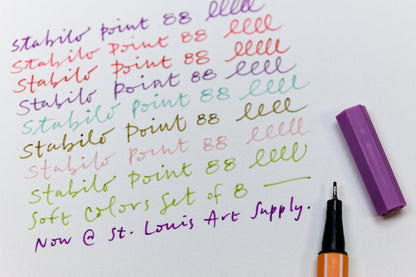 Stabilo point 88
Stabilo point 88
Stabilo point 88
Stabilo point 88
Stabilo point 88
Stabilo point 88
Stabilo point 88
Stabilo point 88
Soft Colors Set of 8
Now @ St. Louis Art Supply.